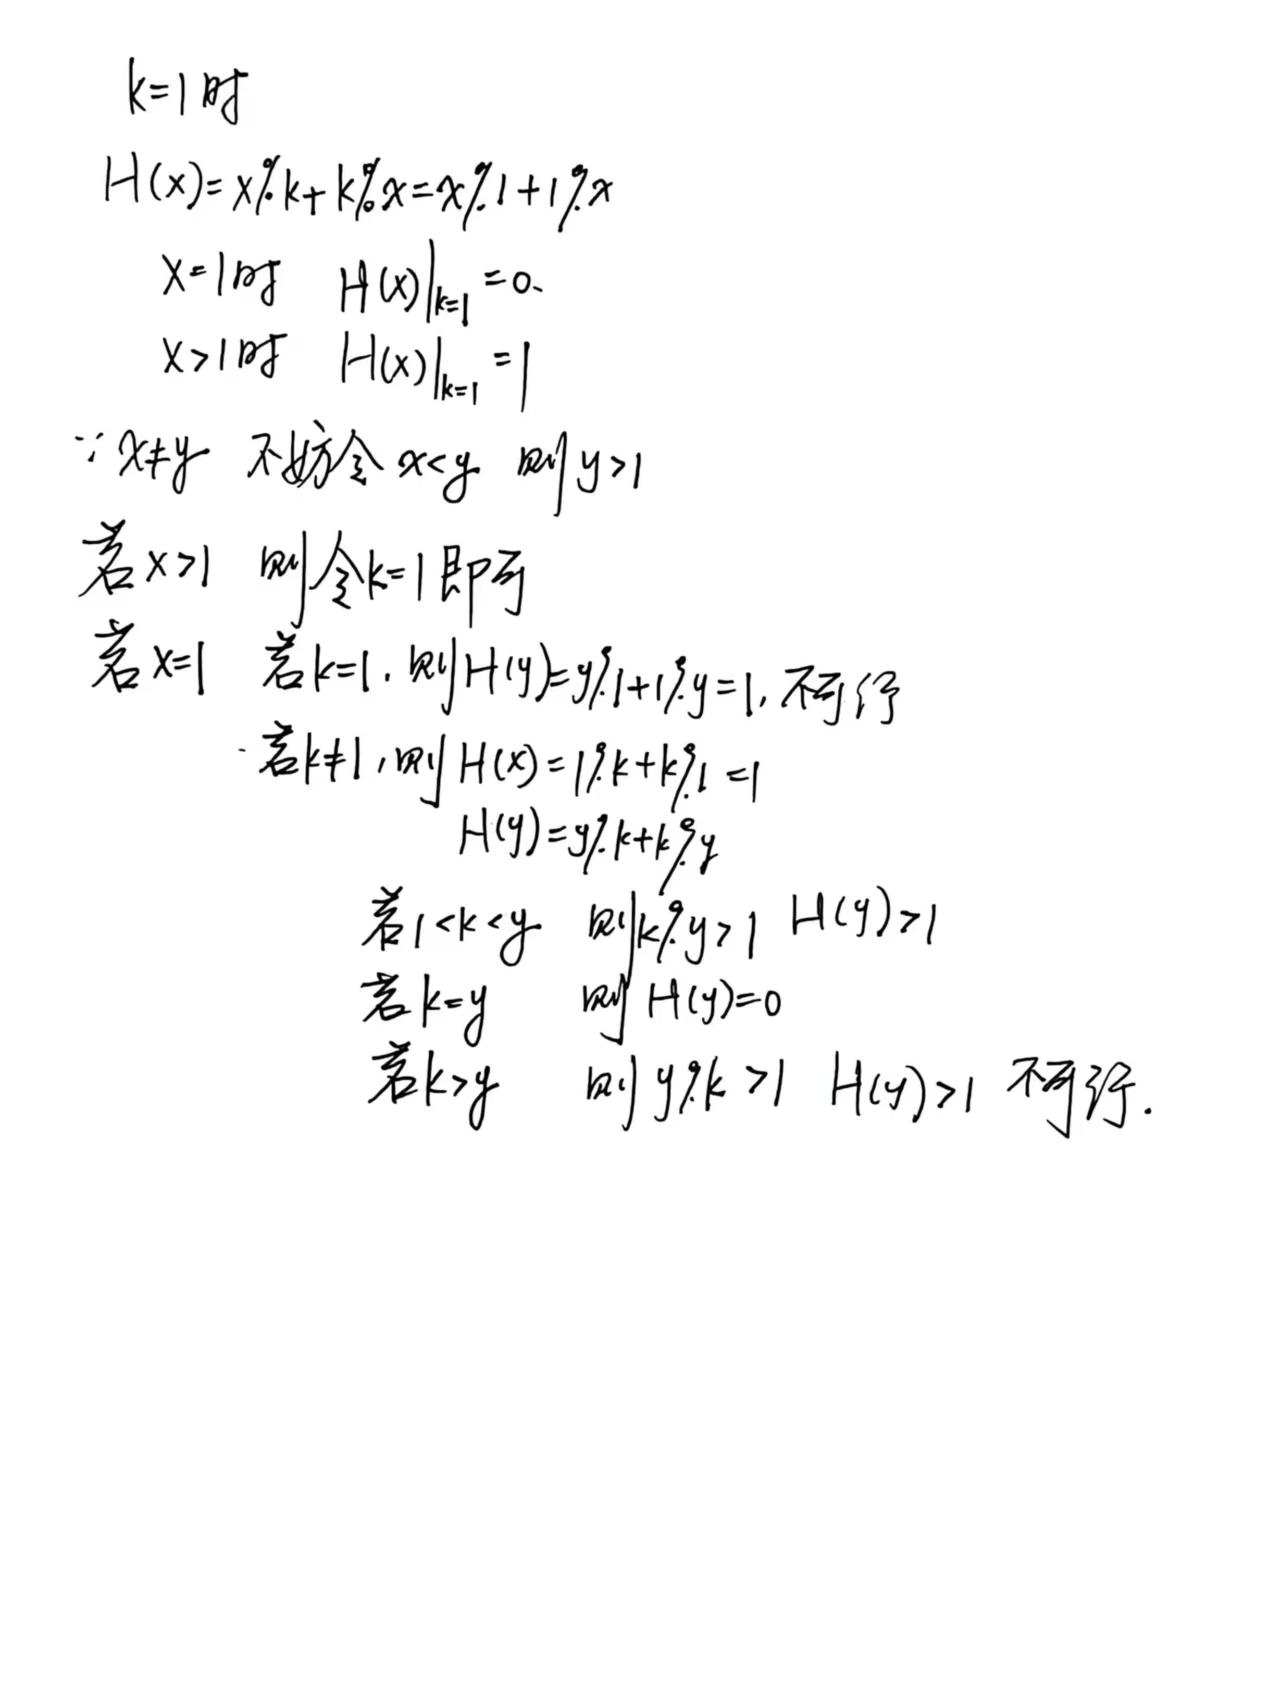 k=1时
H(x)=x%k+k%x=x%1+1%x
x=1时 H(x)|k=1=0.
x>1时 H(x)|k=1=1
∵x≠y 不妨令x<y 则y>1
若x>1 则令k=1即可
若x=1 若k=1,则H(y)=y%1+1%y=1,不可行
若k≠1,则H(x)=1%k+k%1=1
H(y)=y%k+k%y
若1<k<y 则k%y>1 H(y)>1
若k=y 则H(y)=0
若k>y 则y%k>1 H(y)>1 不可行.